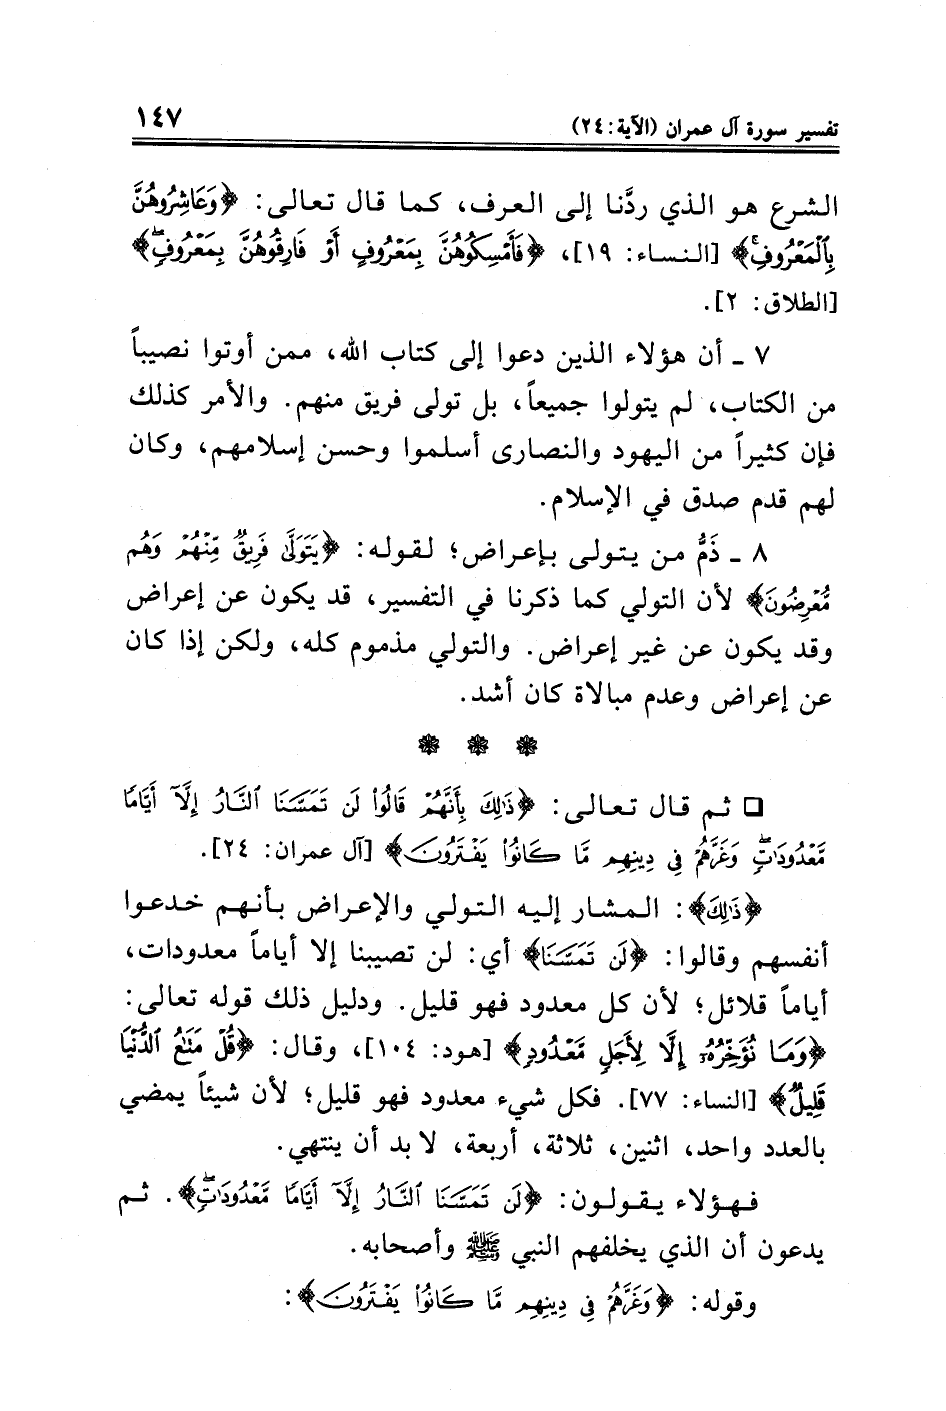 تفسير سورة آل عمران (الآية: ٢٤) ١٤٧
الشرع هو الذي ردَّنا إلى العرف، كما قال تعالى: ﴿وَعَاشِرُوهُنَّ
بِٱلْمَعْرُوفِۚ﴾ [النساء: ١٩]، ﴿فَأَمْسِكُوهُنَّ بِمَعْرُوفٍ أَوْ فَارِقُوهُنَّ بِمَعْرُوفٍۖ﴾
[الطلاق: ٢].
٧ ـ أن هؤلاء الذين دعوا إلى كتاب الله، ممن أوتوا نصيباً
من الكتاب، لم يتولوا جميعاً، بل تولى فريق منهم. والأمر كذلك
فإن كثيراً من اليهود والنصارى أسلموا وحسن إسلامهم، وكان
لهم قدم صدق في الإسلام.
٨ ـ ذَمُّ من يتولى بإعراض؛ لقوله: ﴿يَتَوَلَّىٰ فَرِيقٌ مِّنْهُمْ وَهُم
مُّعْرِضُونَ﴾ لأن التولي كما ذكرنا في التفسير، قد يكون عن إعراض
وقد يكون عن غير إعراض. والتولي مذموم كله، ولكن إذا كان
عن إعراض وعدم مبالاة كان أشد.
❁ ❁ ❁
□ ثم قال تعالى: ﴿ذَٰلِكَ بِأَنَّهُمْ قَالُوا۟ لَن تَمَسَّنَا ٱلنَّارُ إِلَّآ أَيَّامًا
مَّعْدُودَٰتٍۖ وَغَرَّهُمْ فِى دِينِهِم مَّا كَانُوا۟ يَفْتَرُونَ﴾ [آل عمران: ٢٤].
﴿ذَٰلِكَ﴾: المشار إليه التولي والإعراض بأنهم خدعوا
أنفسهم وقالوا: ﴿لَن تَمَسَّنَا﴾ أي: لن تصيبنا إلا أياماً معدودات،
أياماً قلائل؛ لأن كل معدود فهو قليل. ودليل ذلك قوله تعالى:
﴿وَمَا نُؤَخِّرُهُۥٓ إِلَّا لِأَجَلٍ مَّعْدُودٍ﴾ [هود: ١٠٤]، وقال: ﴿قُلْ مَتَٰعُ ٱلدُّنْيَا
قَلِيلٌ﴾ [النساء: ٧٧]. فكل شيء معدود فهو قليل؛ لأن شيئاً يمضي
بالعدد واحد، اثنين، ثلاثة، أربعة، لا بد أن ينتهي.
فهؤلاء يقولون: ﴿لَن تَمَسَّنَا ٱلنَّارُ إِلَّآ أَيَّامًا مَّعْدُودَٰتٍۖ﴾. ثم
يدعون أن الذي يخلفهم النبي ﷺ وأصحابه.
وقوله: ﴿وَغَرَّهُمْ فِى دِينِهِم مَّا كَانُوا۟ يَفْتَرُونَ﴾: